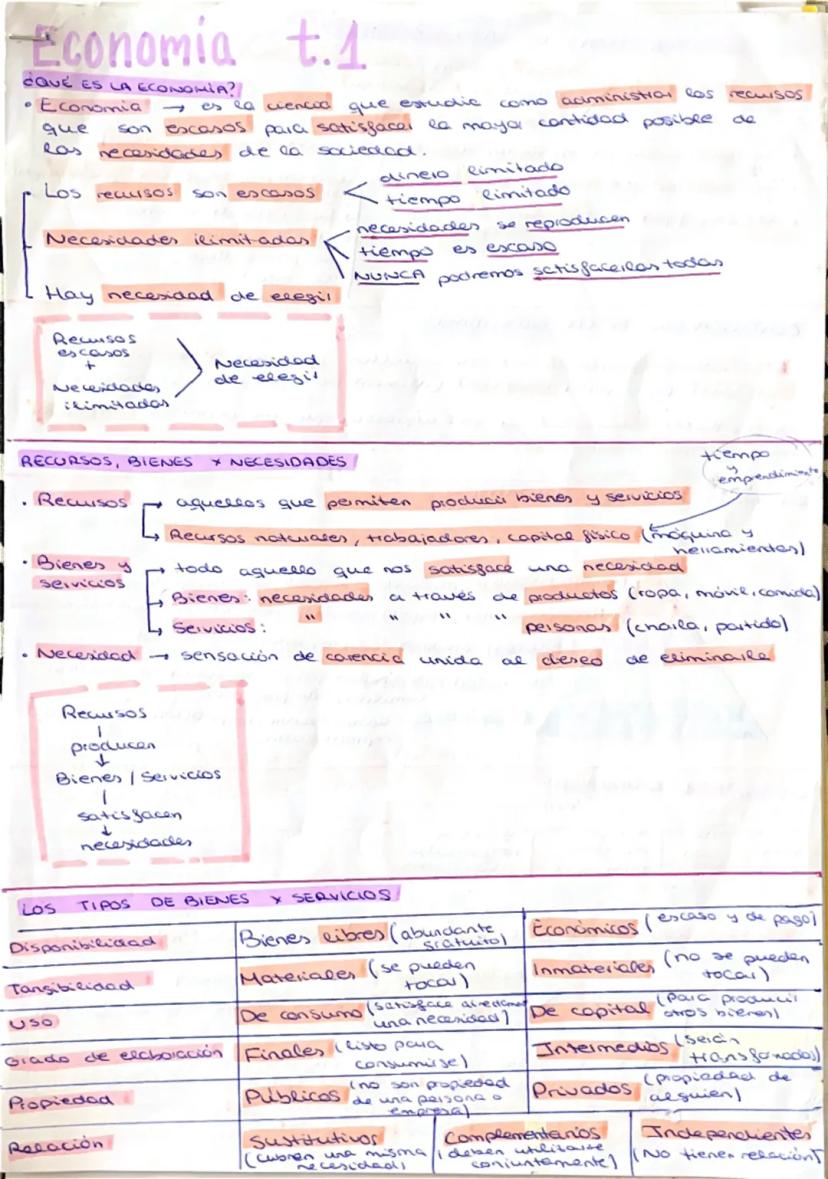 Economía t.1
¿QUÉ ES LA ECONOMÍA?
• Economía → es la ciencia que estudia como administrar los recursos
que son escasos para satisfacer la mayor cantidad posible de
las necesidades de la sociedad.
Los recursos son escasos
dinero limitado
tiempo limitado
Necesidades ilimitadas
necesidades se reproducen
tiempo es escaso
NUNCA podremos satisfacerlas todas
Hay necesidad de elegir
Recursos
escasos
+
Necesidades
ilimitadas
Necesidad
de elegir
RECURSOS, BIENES Y NECESIDADES
tiempo
y
emprendimiento
• Recursos → aquellos que permiten producir bienes y servicios
→ Recursos naturales, trabajadores, capital físico (máquina y
herramientas)
• Bienes y
servicios
→ todo aquello que nos satisface una necesidad
→ Bienes: necesidades a través de productos (ropa, móvil, comida)
→ Servicios: " " " " personas (charla, partido)
• Necesidad → sensación de carencia unida al deseo de eliminarla
Recursos
↓
producen
↓
Bienes / Servicios
↓
satisfacen
↓
necesidades
LOS TIPOS DE BIENES Y SERVICIOS
Disponibilidad
Bienes libres (abundante
gratuito)
Económicos (escaso y de pago)
Tangibilidad
Materiales (se pueden
tocar)
Inmateriales (no se pueden
tocar)
USO
De consumo (satisface
una necesidad)
De capital (para producir
otros bienes)
Grado de elaboración
Finales (listo para
consumirse)
Intermedios (serán
transformados)
Propiedad
Públicos (no son propiedad
de una persona o
empresa)
Privados (propiedad de
alguien)
Relación
Sustitutivos
(cubren una misma
necesidad)
Complementarios
(deben utilizarse
conjuntamente)
Independientes
(NO tienen relación)